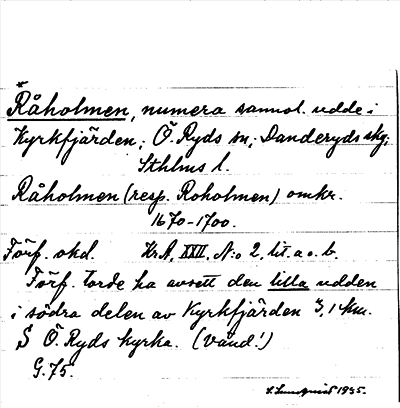 *
Råholmen, numera sannol. udde i
Kyrkfjärden; Ö. Ryds sn; Danderyds skg;
Sthlms l.
Råholmen (resp. Roholmen) omkr.
1670-1700.
Förf. okd. Kr.A, XXII, N:o 2, lit. a o. b.
Förf. torde ha avsett den lilla udden
i södra delen av Kyrkfjärden 3,1 km.
S Ö. Ryds kyrka. (Vänd!)
G. 75.
1935.